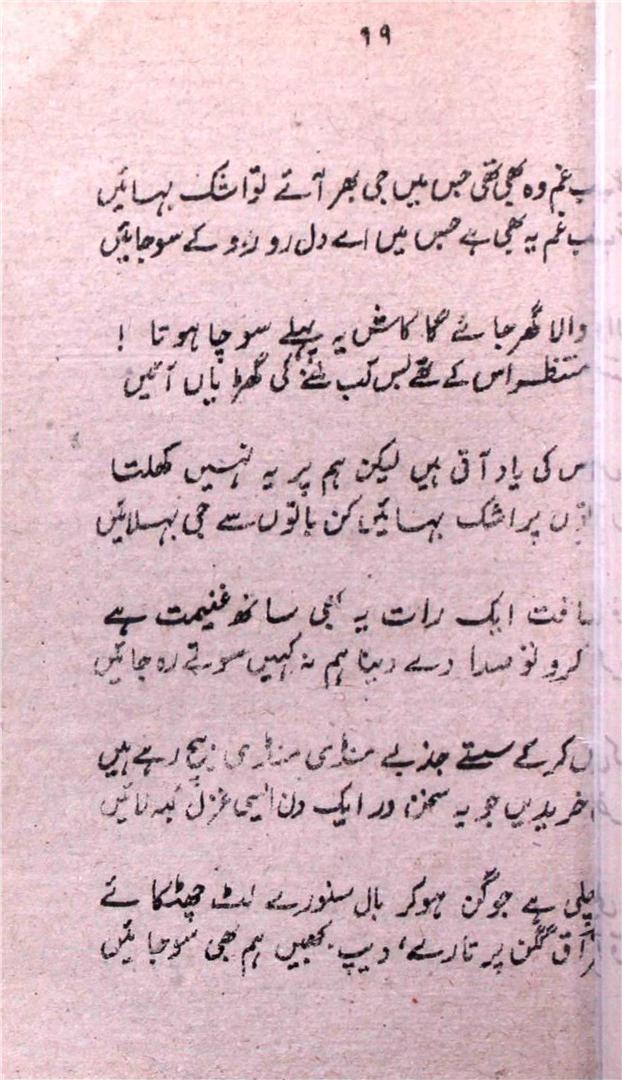 ۱۹
غم وہ بھی تھی جس میں جی بھر آئے تو اشک بہائیں
غم یہ بھی ہے جس میں اے دل رو رو کے سو جائیں
والا گھر جائے گا کاش یہ پہلے سوچا ہوتا !
منتظر اس کے تھے بس کب ملنے کی گھڑیاں آئیں
کی یاد آتی ہیں لیکن ہم پر یہ نہیں کھلتا
پر اشک بہائیں کن باتوں سے جی بہلائیں
ایک رات یہ بھی ساتھ غنیمت ہے
کرو تو صدا دے دینا ہم نہ کہیں سوتے رہ جائیں
کر کے سستے جذبے منڈی منڈی بیچ رہے ہیں
خریدیں جو یہ سخنور ایک دن ایسی غزل کہہ لائیں
چلی ہے جوگن ہو کر بال سنورے لٹ چھٹکائے
گگن پر تارے، دیپ بجھیں ہم بھی سو جائیں